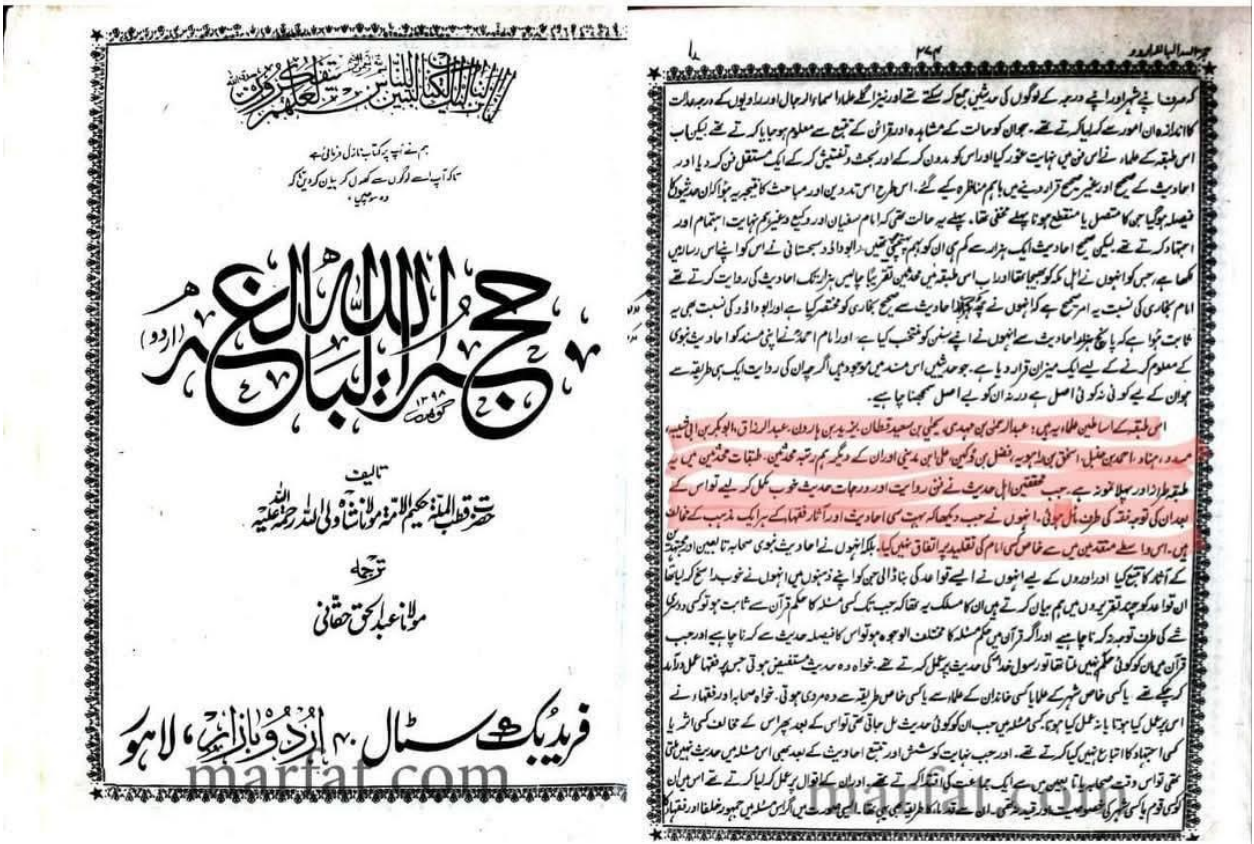 وانزلنا الیک الذکر لتبین للناس ما نزل الیہم ولعلہم یتفکرون
ہم نے آپ پر کتاب نازل فرمائی ہے
تاکہ آپ اسے لوگوں سے کھول کر بیان کر دیں تاکہ
وہ سوچیں۔
حجۃ اللہ البالغہ (اردو)
گوہر ۱۳۹۸
تالیف
حضرت قطب الملۃ حکیم الامۃ مولانا شاہ ولی اللہ رحمۃ اللہ علیہ
ترجمہ
مولانا عبدالحق حقانی
فرید بک سٹال ۴۰ اردو بازار، لاہور
marfat.com
۲۷۴
کہ صرف اپنے شہر اور اپنے درجہ کے لوگوں کی حدیثیں جمع کر سکتے تھے اور نیز اگلے علماء اسماء الرجال اور راویوں کے درجہ عدالت
کا اندازہ ان امور سے کر لیا کرتے تھے۔ جو ان کو حالت کے مشاہدہ اور قرائن کے تتبع سے معلوم ہو جایا کرتے تھے لیکن اب
اس طبقہ کے علماء نے اس فن میں نہایت غور کیا اور اس کو مدون کر کے اور بحث و تفتیش کر کے ایک مستقل فن کر دیا اور
احادیث کے صحیح اور غیر صحیح قرار دینے میں باہم مناظرہ کیے گئے۔ اس طرح اس تدوین اور مباحث کا نتیجہ یہ ہوا کہ ان حدیثوں کا
فیصلہ ہو گیا جن کا متصل یا منقطع ہونا پہلے مخفی تھا۔ پہلے یہ حالت تھی کہ امام سفیان اور وکیع وغیرہم نہایت اہتمام اور
اجتہاد کرتے تھے لیکن صحیح احادیث ایک ہزار سے کم ہی ان کو بہم پہنچی تھیں۔ ابو داؤد سجستانی نے اس کو اپنے اس رسالہ میں
لکھا ہے، جس کو انہوں نے اہل مکہ کو بھیجا تھا اور اب اسی طبقہ میں محدثین تقریباً چالیس ہزار تک احادیث کی روایت کرتے تھے
امام بخاری کی نسبت یہ امر صحیح ہے کہ انہوں نے چھ احادیث سے صحیح بخاری کو مختصر کیا ہے اور ابو داؤد کی نسبت بھی یہ
ثابت ہوا ہے کہ پانچ ہزار احادیث سے انہوں نے اپنے سنن کو منتخب کیا ہے، اور امام احمد نے اپنی مسند کو احادیث نبوی
کے معلوم کرنے کے لیے ایک میزان قرار دیا ہے۔ جو حدیثیں اس مسند میں موجود ہیں اگر چہ ان کی روایت ایک ہی طریقہ سے
ہو ان کے لیے کوئی نہ کوئی اصل ہے ورنہ ان کو بے اصل سمجھنا چاہیے۔
اس طبقہ کے اساطین علماء یہ ہیں: عبدالرحمٰن بن مہدی۔ یحییٰ بن سعید قطان۔ یزید بن ہارون۔ عبدالرزاق۔ ابوبکر بن ابی شیبہ،
مسدد، ہناد، احمد بن حنبل، اسحٰق بن راہویہ، فضل بن دکین، علی ابن مدینی اور ان کے دیگر ہم رتبہ محدثین۔ طبقات محدثین میں یہ
طبقہ طراز اور پہلا نمونہ ہے۔ جب محققین اہل حدیث نے فن روایت اور درجات حدیث خوب مکمل کر لیے تو اس کے
بعد ان کی توجہ فقہ کی طرف مائل ہوئی۔ انہوں نے جب دیکھا کہ بہت سی احادیث اور آثار فقہاء کے ہر ایک مذہب کے مخالف
ہیں۔ اس واسطے متقدمین میں سے خاص کسی امام کی تقلید پر اتفاق نہیں کیا۔ بلکہ انہوں نے احادیث نبوی صحابہ تابعین اور مجتہدین
کے آثار کا تتبع کیا اور اوروں کے لیے انہوں نے ایسے قواعد کی بنا ڈالی جن کو اپنے ذہنوں میں انہوں نے خوب راسخ کر لیا تھا
ان قواعد کو چند تقریروں میں ہم بیان کرتے ہیں ان کا مسلک یہ تھا کہ جب تک کسی مسئلہ کا حکم قرآن سے ثابت ہو تو کسی دوسری
شے کی طرف توجہ نہ کرنا چاہیے اور اگر قرآن میں حکم مسئلہ کا مختلف الوجوہ ہو تو اس کا فیصلہ حدیث سے کرنا چاہیے اور جب
قرآن میں ان کو کوئی حکم نہیں ملتا تھا تو رسول خدا کی حدیث پر عمل کرتے تھے۔ خواہ وہ حدیث مستفیض ہوتی جس پر فقہا عمل درآمد
کر چکے تھے یا کسی خاص شہر کے علماء یا کسی خاندان کے علماء سے یا کسی خاص طریقہ سے وہ مروی ہوتی۔ خواہ صحابہ اور فقہاء نے
اس پر عمل کیا ہوتا یا نہ عمل کیا ہوتا، کسی مسئلہ میں جب ان کو کوئی حدیث مل جاتی تھی تو اس کے بعد پھر اس کے مخالف کسی اثر یا
کسی اجتہاد کا اتباع نہیں کیا کرتے تھے۔ اور جب نہایت کوشش اور تتبع احادیث کے بعد بھی اس مسئلہ میں حدیث نہیں ملتی
تھی تو اس وقت صحابہ یا تابعین میں سے ایک جماعت کی اقتدا کرتے تھے۔ اور ان کے اقوال پر عمل کر لیا کرتے تھے اس میں ان
کو کسی قوم یا کسی شہر کی خصوصیت اور قید نہ تھی۔ ان سے قدماء کا طریقہ بھی یہی تھا۔ ایسی صورت میں اگر اس مسئلہ میں جمہور خلفا اور فقہاء
marfat.com